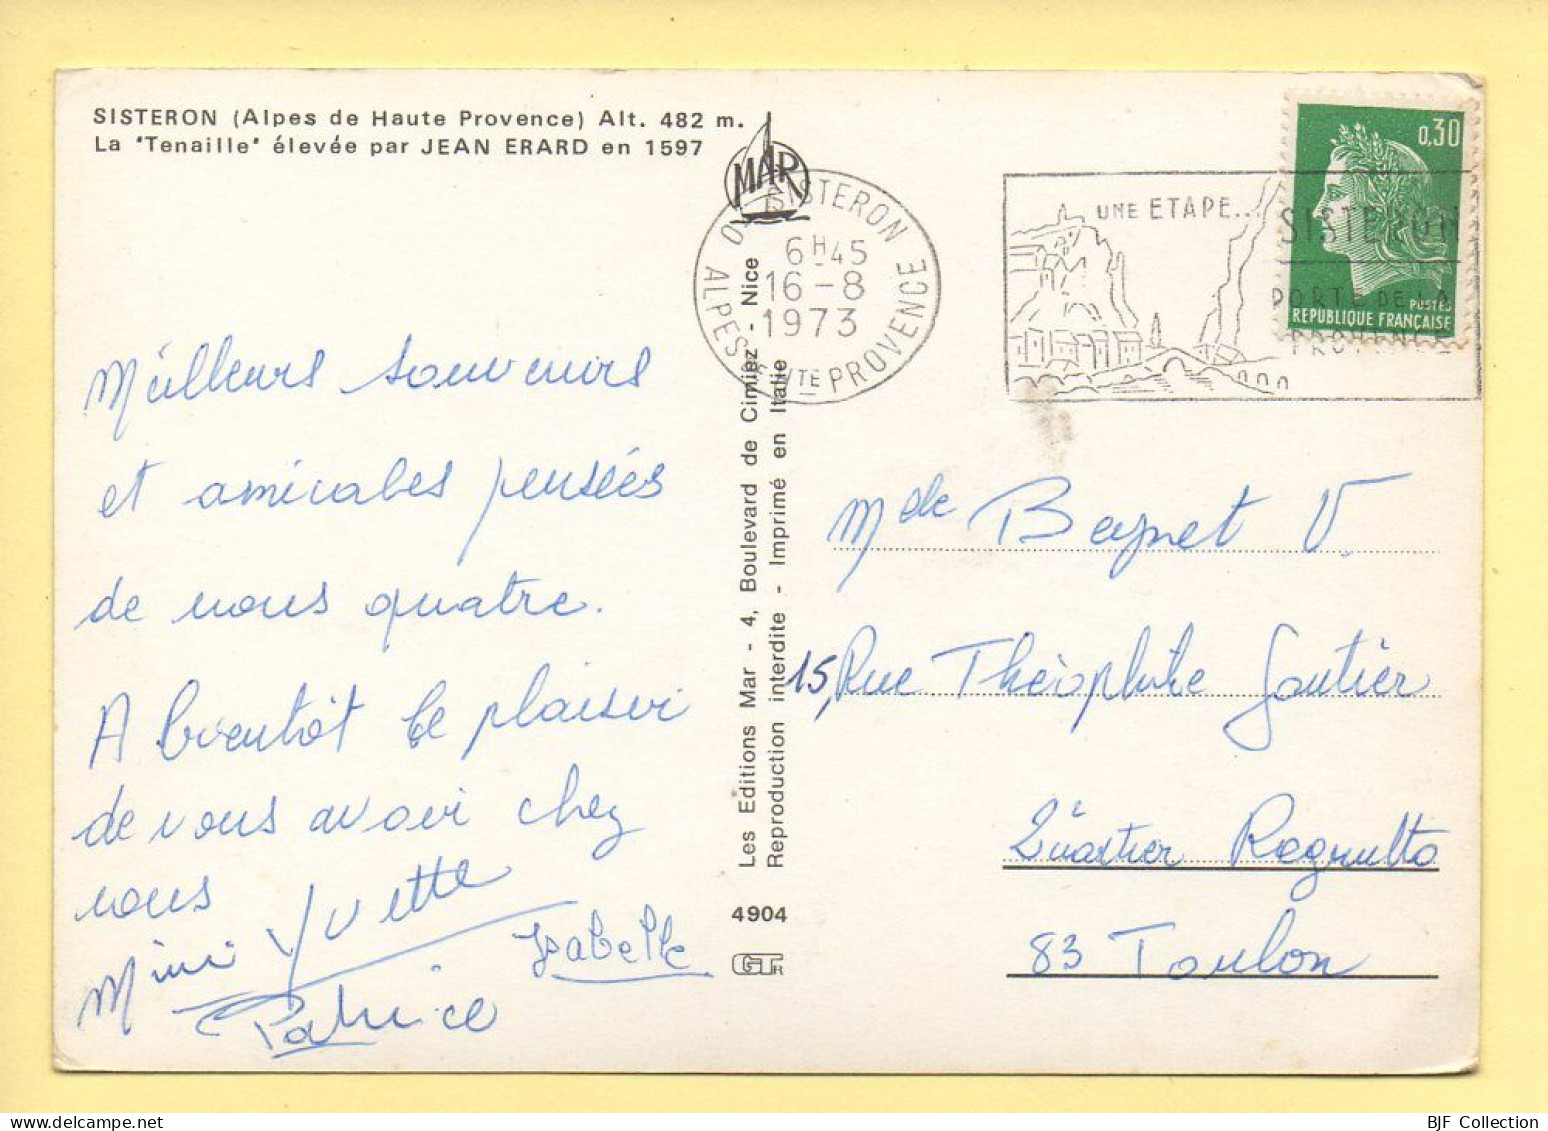 SISTERON (Alpes de Haute Provence) Alt. 482 m.
La "Tenaille" élevée par JEAN ERARD en 1597
MAR
SISTERON
6H45
16-8
1973
ALPES DE HTE PROVENCE
UNE ETAPE...
SISTERON
PORTE DE LA
PROVENCE
0,30
POSTES
REPUBLIQUE FRANÇAISE
Meilleurs souvenirs
et amicales pensées
de nous quatre.
A bientôt le plaisir
de vous avoir chez
nous
Yvette
Mimi
Isabelle
Patrice
Les Editions Mar - 4, Boulevard de Cimiez - Nice
Reproduction interdite - Imprimé en Italie
4904
Mde Baynet V.
15, Rue Théophile Gautier
Quartier Regnulto
83 Toulon
BJF Collection